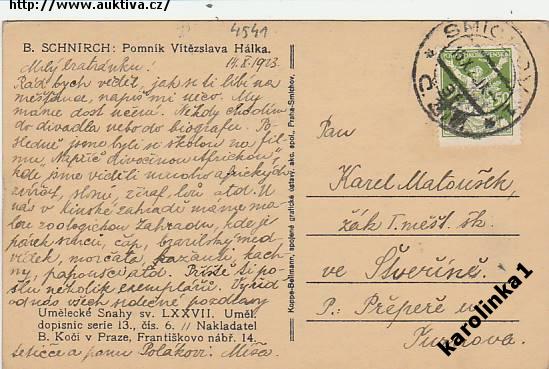 http://www.auktiva.cz/
4541
B. SCHNIRCH: Pomník Vítězslava Hálka.
Milý bratránku! 14./X. 1923.
Rád bych věděl, jak se ti líbí na
měšťance, napiš mi něco. My
máme dost učení. Někdy chodím
do divadla nebo do biografu. Po-
sledně jsme byli se školou na fil-
mu „Napříč divočinou Africkou",
kde jsme viděli mnoho afrických
zvířat, slony, žiraf, lvů atd. U
nás v Kinské zahradě máme ma-
lou zoologickou zahradu, kde je
párek srnců, čáp, brazilský med-
vídek, morčata, bažanti, kach-
ny, papoušci atd. Příště ti po-
šlu několik exemplářů. Vyřiď
od nás všech srdečné pozdravy
Umělecké Snahy sv. LXXVII. Uměl.
dopisnic serie 13., čís. 6. // Nakladatel
B. Kočí v Praze, Františkovo nábř. 14.
tetičce a panu Polákovi. Míťa.
Koppe-Bellmann, spojené grafické ústavy, akc. spol., Praha-Smíchov.
SMÍCHOV
50
Pan
Karel Matoušek,
žák I. měšť. šk.
ve Štveříně.
P.: Přepeře u
Turnova.
karolinka1